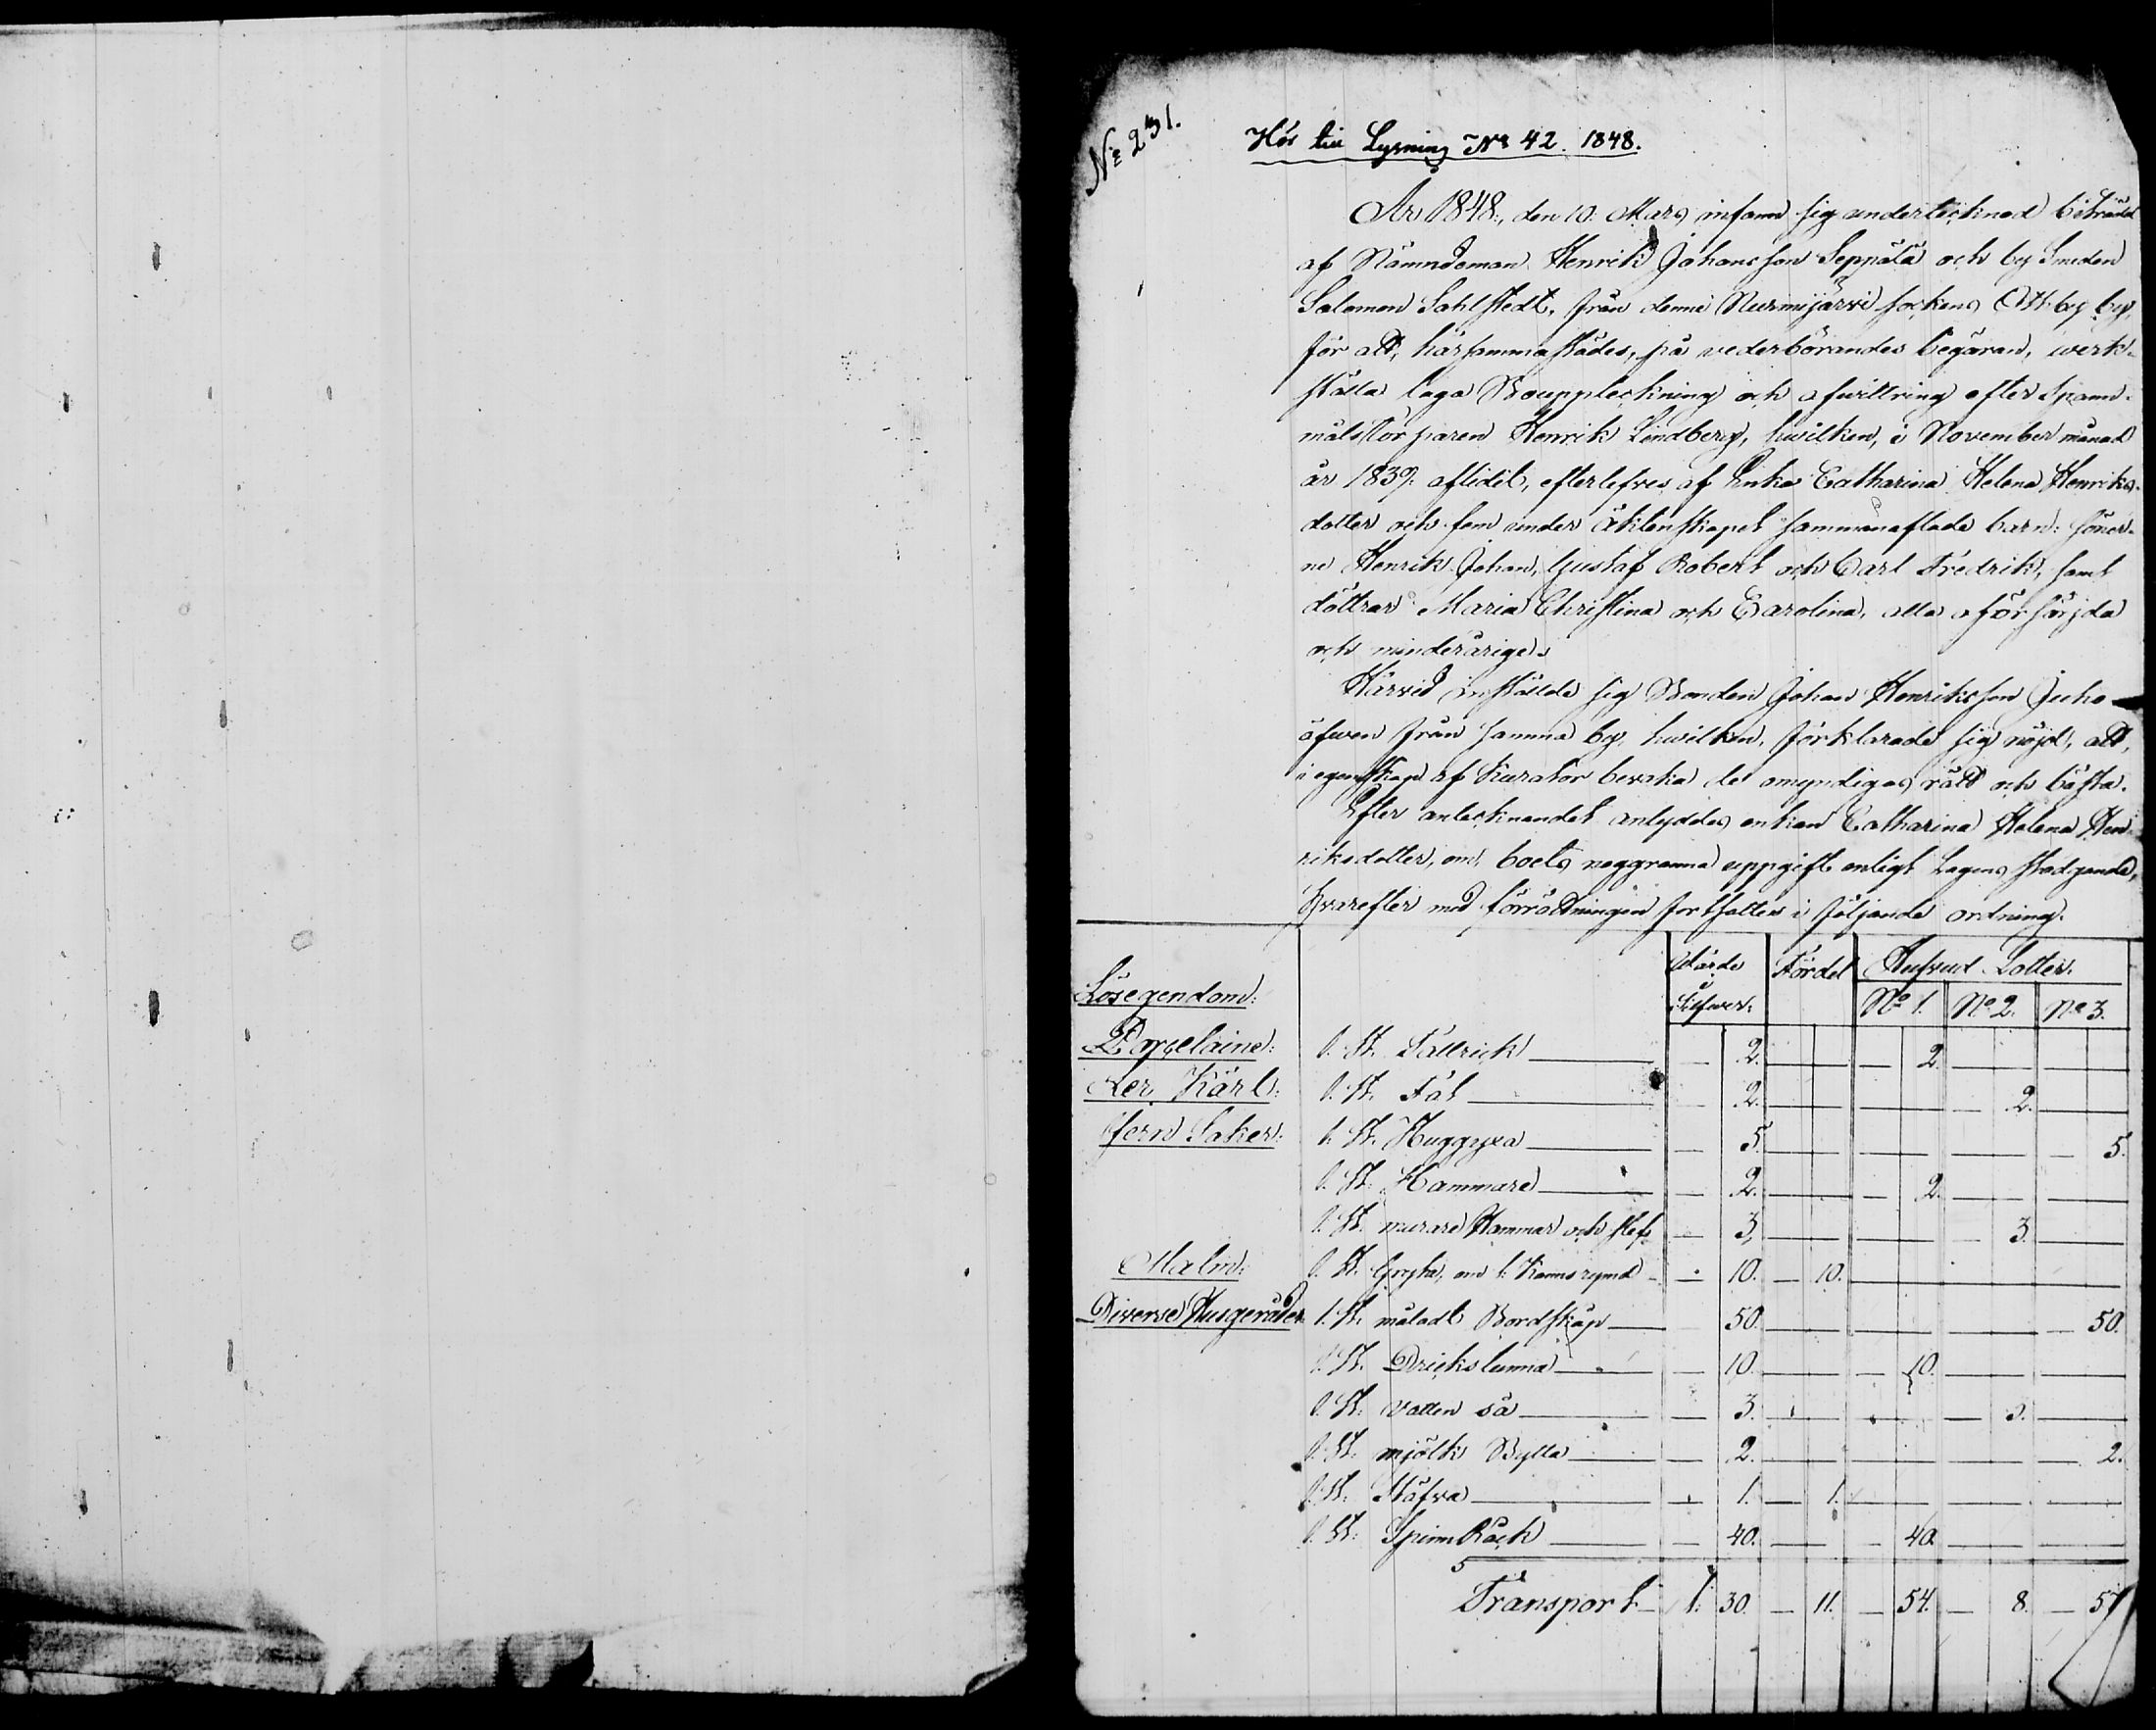 No 231.
Hör till Lysning No 42. 1848.
År 1848, den 10. Mars infann sig undertecknad biträdd
af Nämndeman Henrik Johansson Seppälä och by Smeden
Salomon Sahlstedt, från denne Nurmijärvi sockens Ottby by,
för att, härsammastädes, på vederbörandes begäran, werk-
ställa laga Bouppteckning och afwittring efter Spann-
målstorparen Henrik Lindberg, hwilken, i November månad
år 1839. aflidit, efterlefves af Enka Catharina Helena Henriks-
dotter och fem under äktenskapet sammanaflade barn: söner-
ne Henrik Johan, Gustaf Robert och Carl Fredrik, samt
döttrar Maria Christina och Carolina, alla oförsörjda
och minderårige.
Härvid inställde sig Bonden Johan Henriksson Juho
äfwen från samma by, hwilken, förklarade sig nöjd, att,
i egenskap af Kurator bevaka de omyndigas rätt och bästa.
Efter antecknandet antyddes enkan Catharina Helena Hen-
riksdotter, om boets noggranna uppgift enligt Lagens stadgande,
hvarefter med förrättningen fortsattes i följande ordning.
Lösegendom: Värde Silfwer. Fördel Hufvud Lotter.
No 1. No 2. No 3.
Porcelaine: 1. St. Tallrick — 2. — 2.
Ler Kärl: 1. St. Fat — 2. — 2.
Jern Saker: 1. St. Huggyxa — 5. — 5.
1. St. Hammare — 2. — 2.
1. St. murare Hammar och slef — 3. — 3.
Malm: 1. St. Gryta, om 1. Kanns rymd — 10. — 10.
Diverse Husgeråder 1. St. måladt Bordskåp — 50. — 50.
1. St. Dricks tunna — 10. — 10.
1. St. vatten så — 3. — 3.
1. St. mjölk Bytta — 2. — 2.
1. St. Stäfva — 1. — 1.
1. St. Spinn Råck — 40. — 40.
Transport 1. 30. — 11. — 54. — 8. — 57